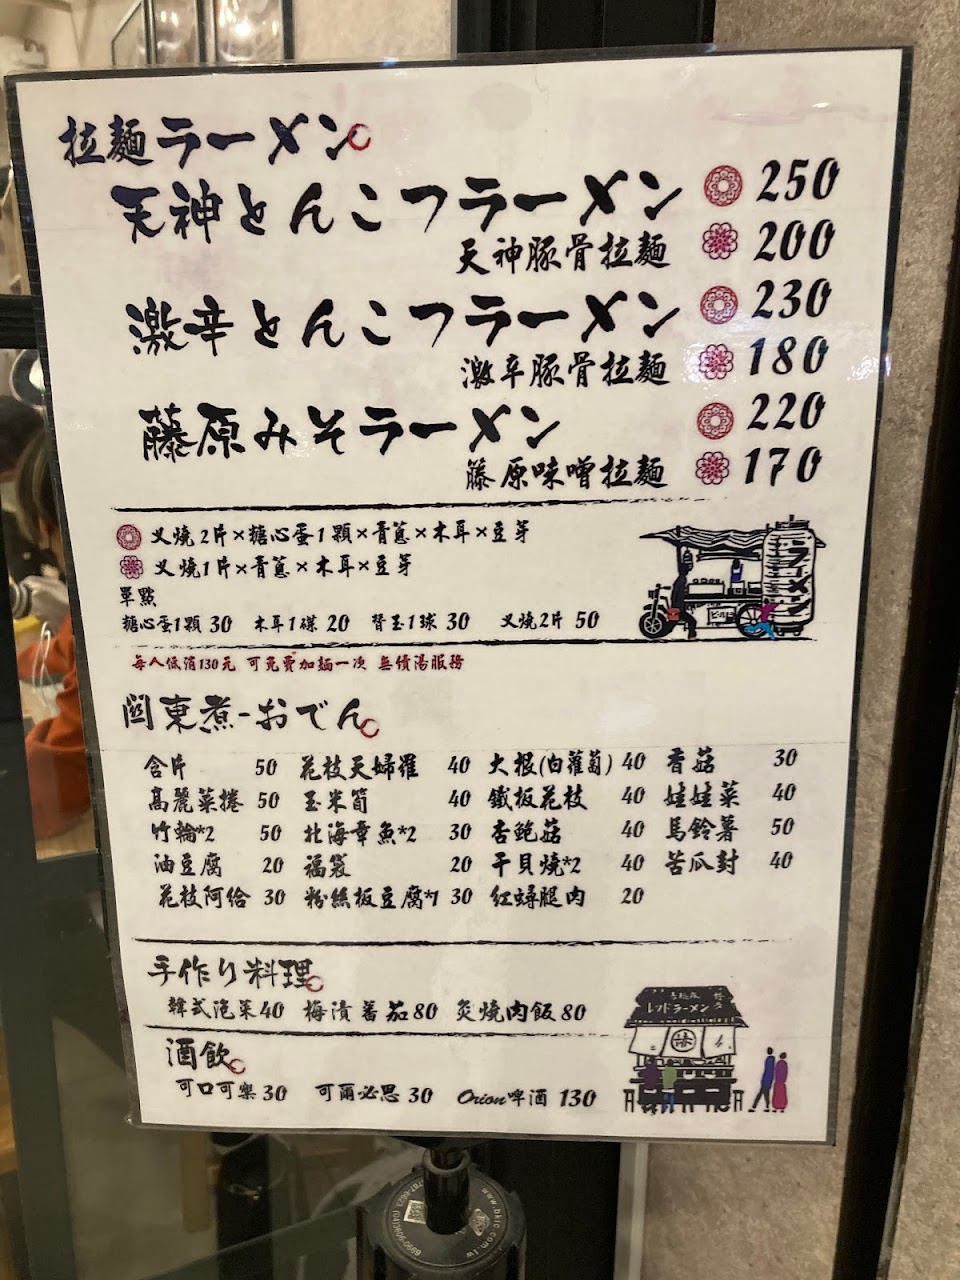 拉麵ラーメン
天神とんこつラーメン 250
天神豚骨拉麵 200
激辛とんこつラーメン 230
激辛豚骨拉麵 180
藤原みそラーメン 220
藤原味噌拉麵 170
叉燒2片×糖心蛋1顆×青蔥×木耳×豆芽
叉燒1片×青蔥×木耳×豆芽
單點
糖心蛋1顆 30 木耳1碟 20 替玉1球 30 叉燒2片 50
每人低消130元 可免費加麵一次 無續湯服務
關東煮-おでん
含片 50 花枝天婦羅 40 大根(白蘿蔔) 40 香菇 30
高麗菜捲 50 玉米筍 40 鐵板花枝 40 娃娃菜 40
竹輪*2 50 北海章魚*2 30 杏鮑菇 40 馬鈴薯 50
油豆腐 20 福袋 20 干貝燒*2 40 苦瓜封 40
花枝阿給 30 粉絲板豆腐*1 30 紅蟳腿肉 20
手作り料理
韓式泡菜40 梅漬蕃茄80 炙燒肉飯80
酒飲
可口可樂 30 可爾必思 30 Orion啤酒 130
ラーメン
レッドラーメン
www.bkic.com.tw